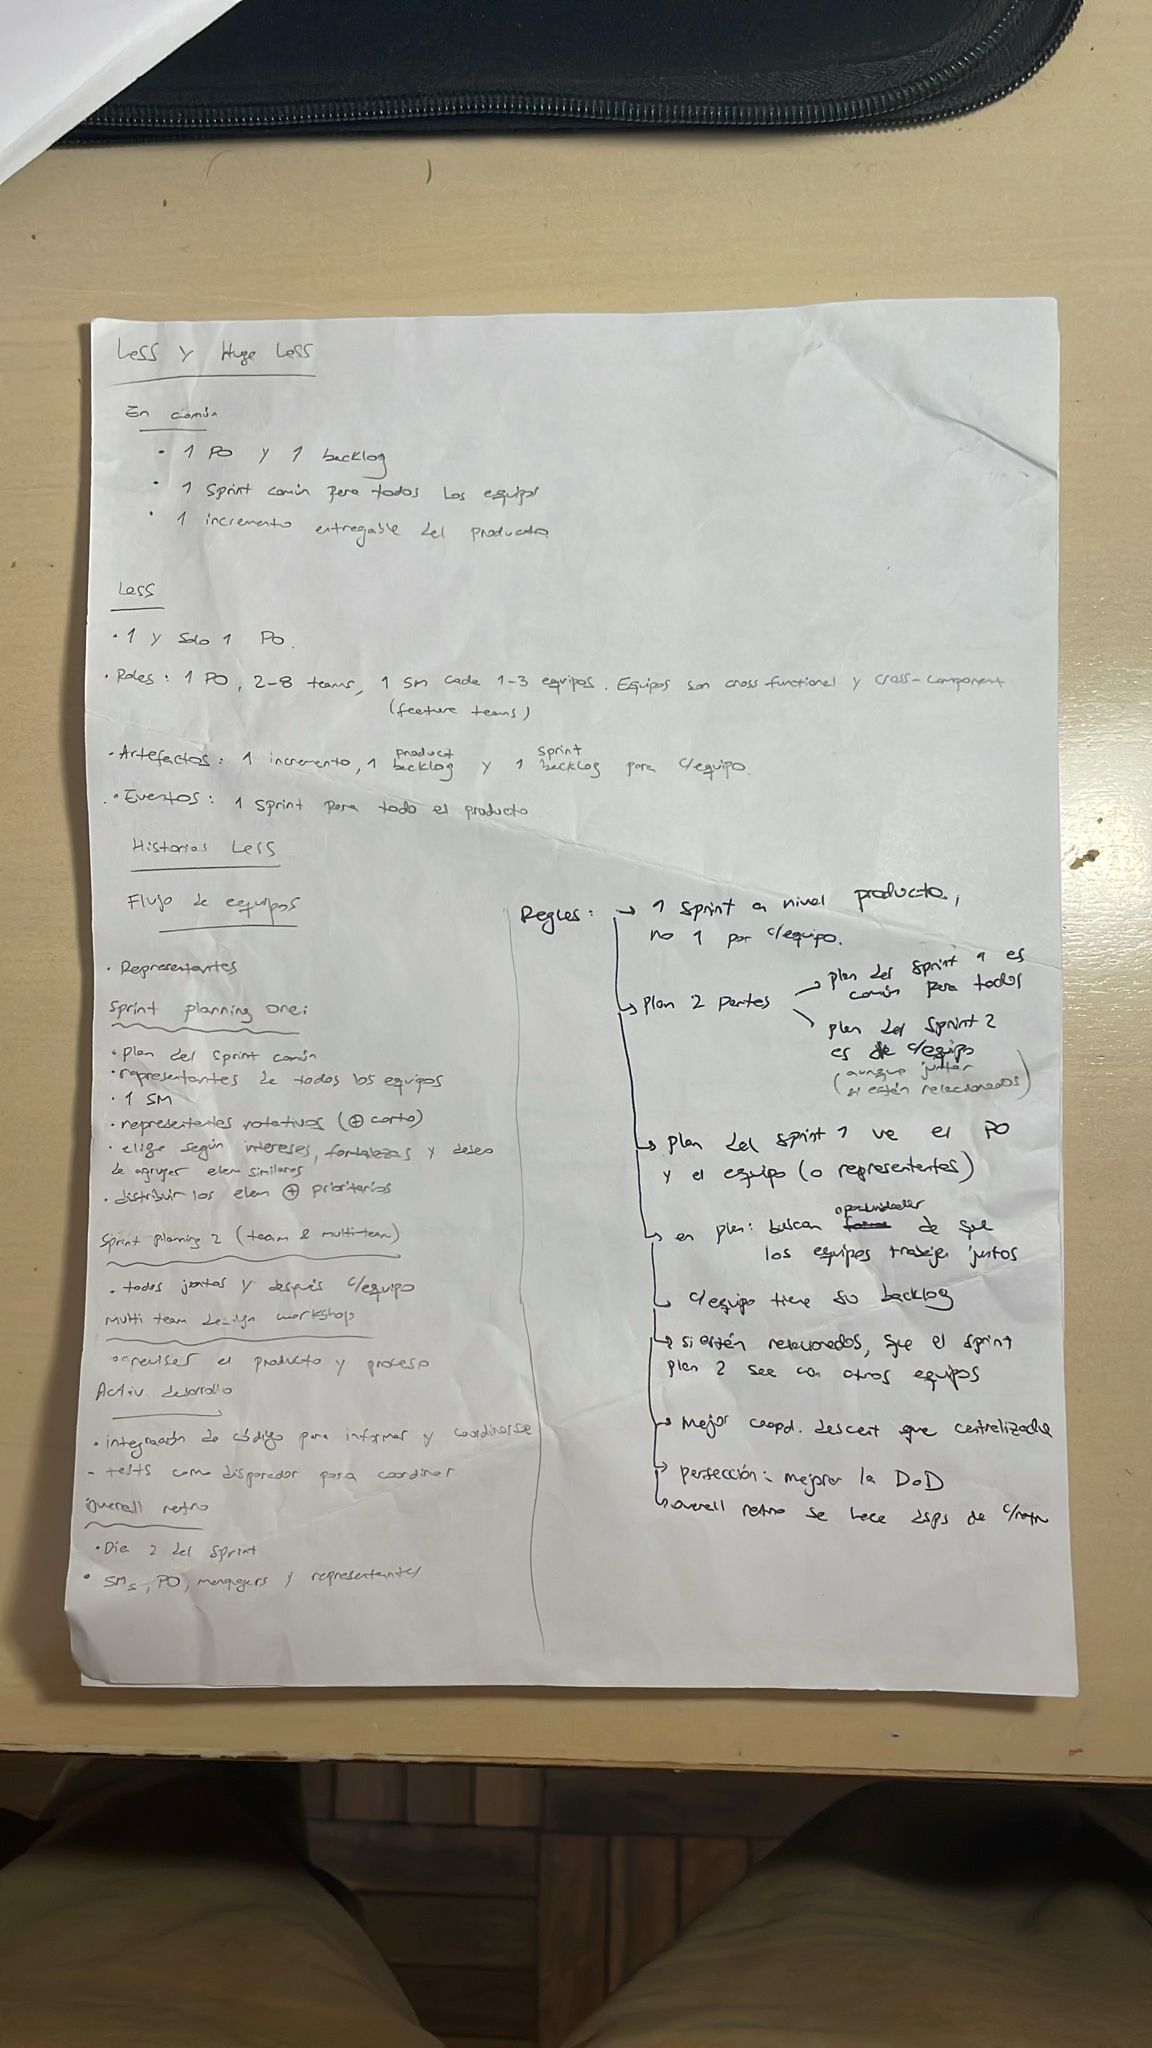 LeSS y Huge LeSS
En común
• 1 PO y 1 backlog
• 1 Sprint común para todos los equipos
• 1 incremento entregable del producto
LeSS
• 1 y solo 1 PO.
• Roles: 1 PO, 2-8 teams, 1 SM cada 1-3 equipos. Equipos son cross functional y cross-component
(feature teams)
• Artefactos: 1 incremento, 1 product backlog y 1 sprint backlog para c/equipo.
• Eventos: 1 Sprint para todo el producto
Historias LeSS
Flujo de equipos
• Representantes
Sprint planning one:
• plan del sprint común
• representantes de todos los equipos
• 1 SM
• representantes rotativos (⊕ corto)
• elige según intereses, fortalezas y deseo
de agrupar elem similares
• distribuir los elem ⊕ prioritarios
Sprint planning 2 (team & multi-team)
• todos juntos y después c/equipo
Multi team design workshop
el producto y proceso
Activ. desarrollo
• integración de código para informar y coordinarse
- tests como disparador para coordinar
Overall retro
• Día 2 del sprint
• SMs, PO, managers y representantes
Reglas: → 1 Sprint a nivel producto,
no 1 por c/equipo.
→ plan 2 partes → plan del sprint 1 es
común para todos
→ plan del sprint 2
es de c/equipo
(aunque juntos
si están relacionados)
→ plan del sprint 1 ve el PO
y el equipo (o representantes)
→ en plan: buscan oportunidades de que
los equipos trabajen juntos
→ c/equipo tiene su backlog
→ si están relacionados, que el sprint
plan 2 sea con otros equipos
→ mejor coord. descent que centralizada
→ perfección: mejorar la DoD
→ overall retro se hace dsps de c/retro